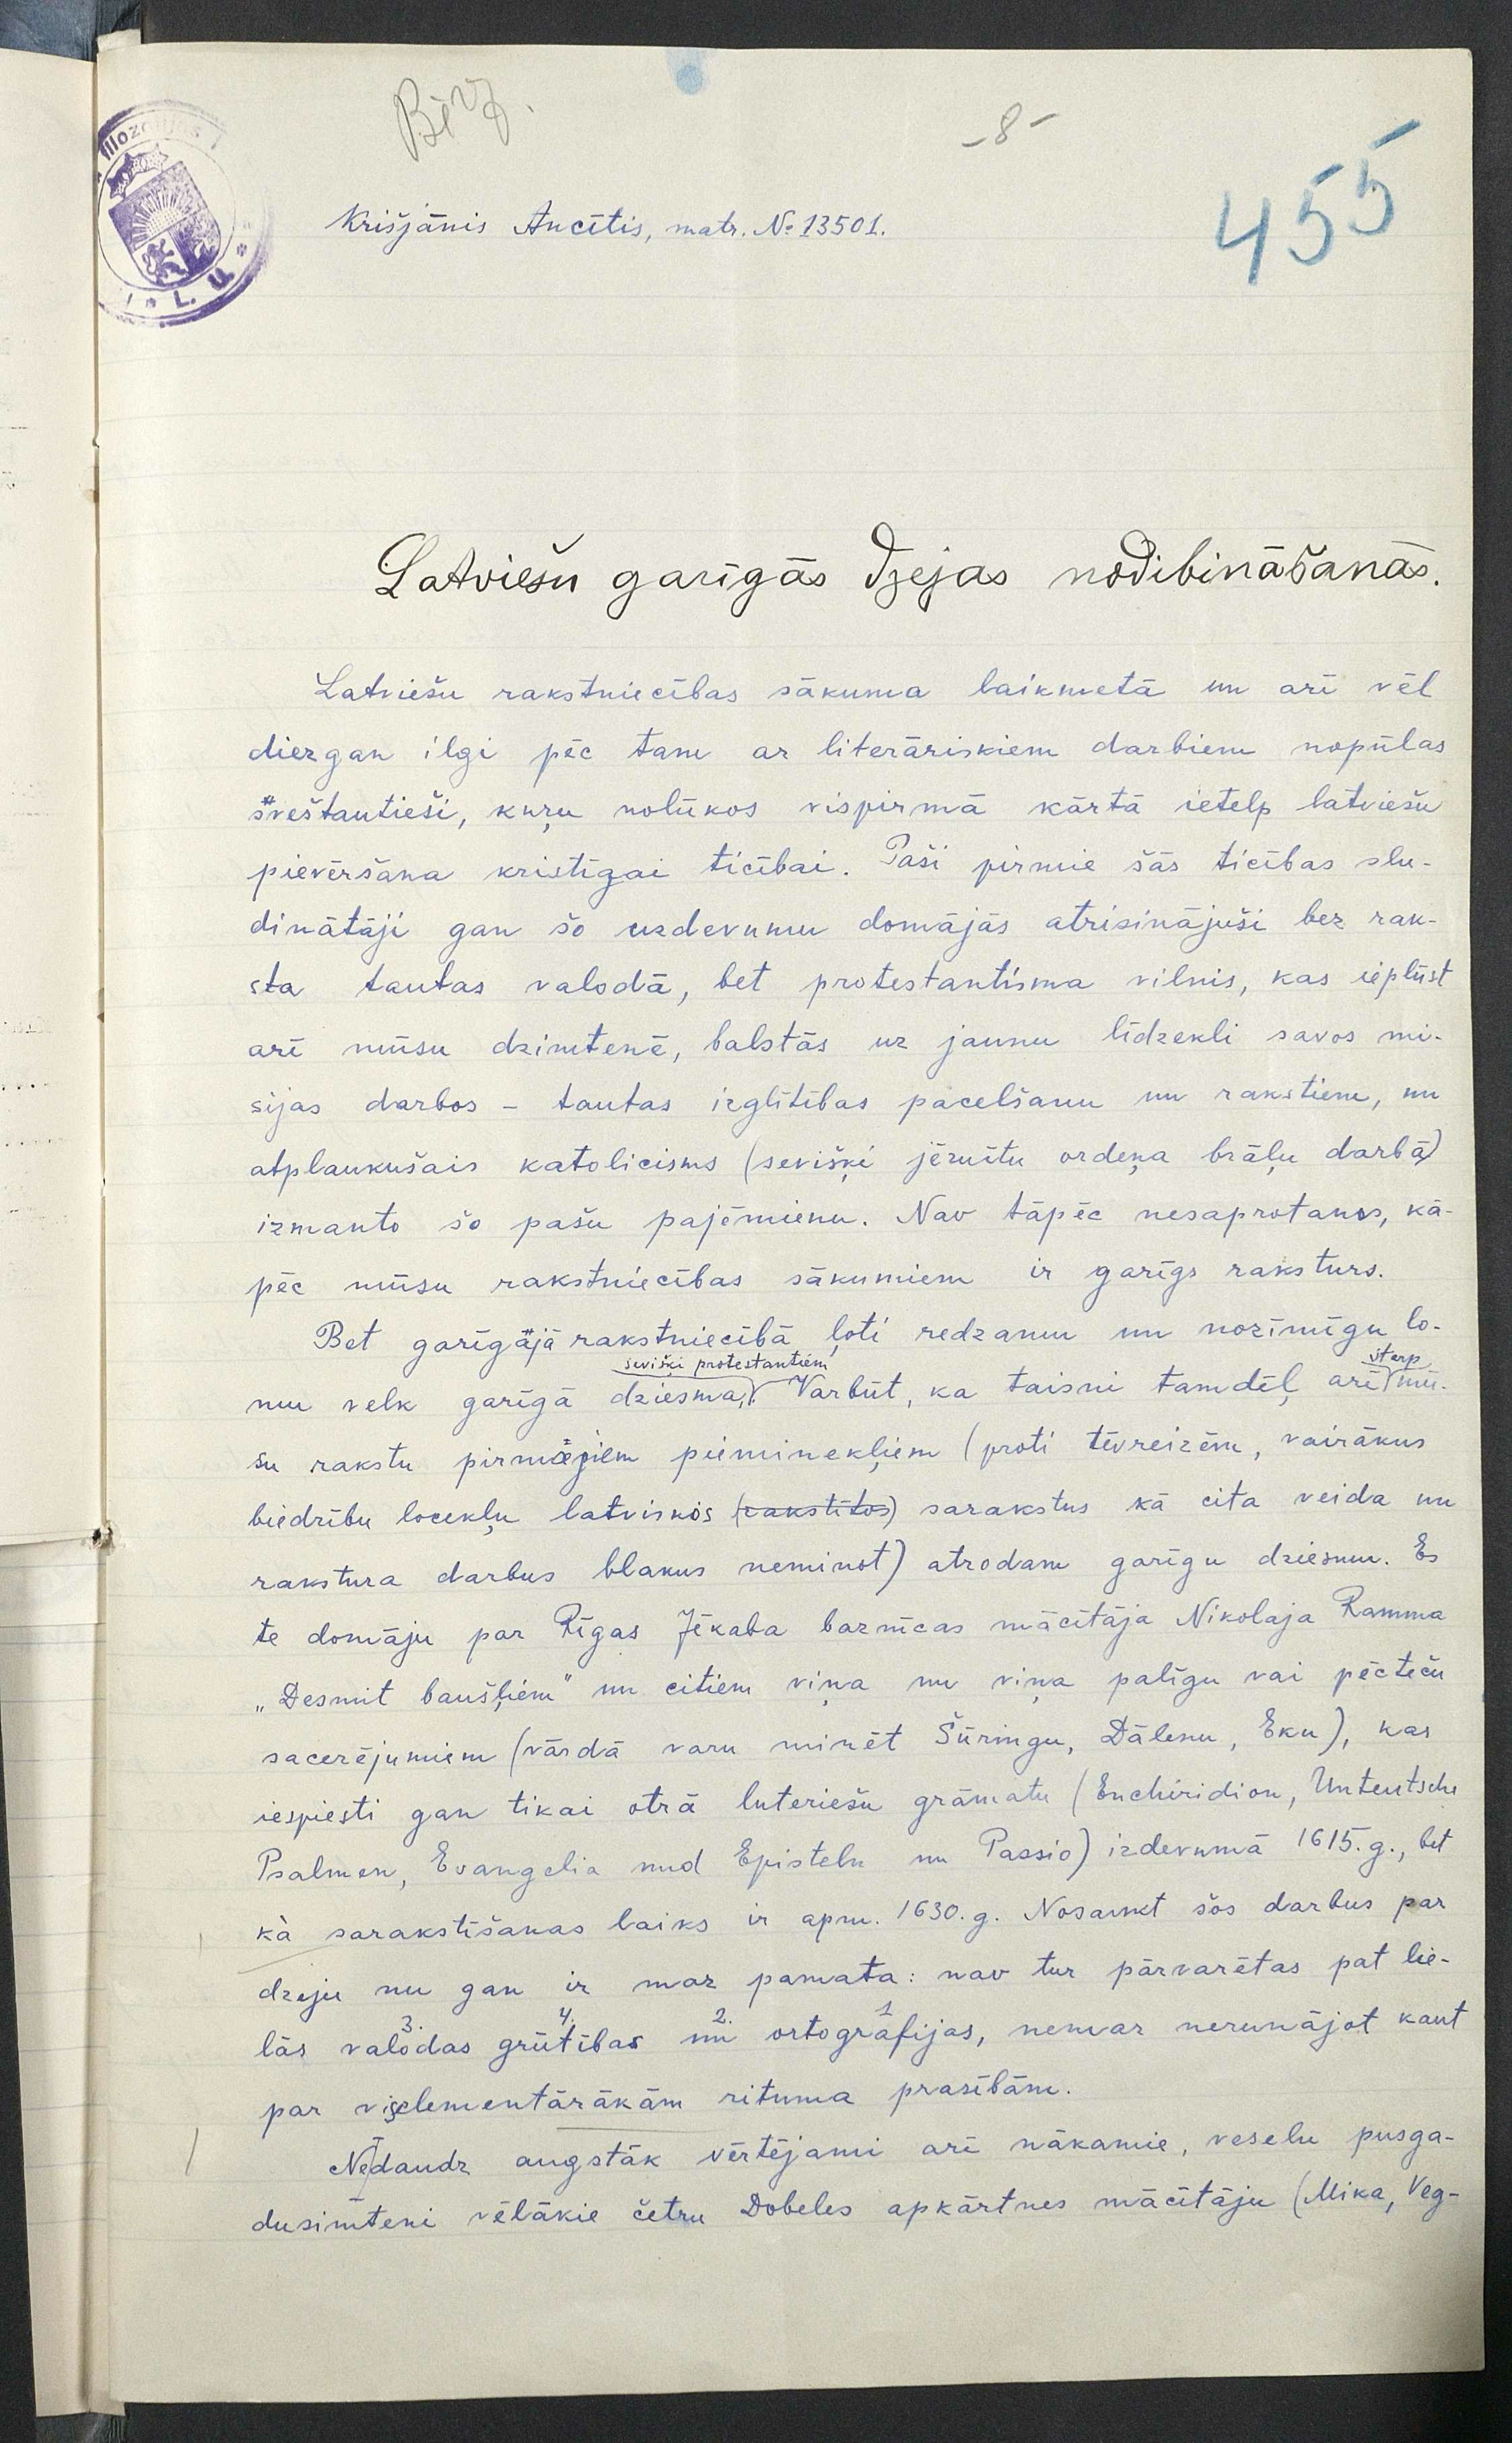 - 8 -
455
Krišjānis Ancītis, matr. № 13501.
L. U.
Latviešu garīgās dzejas nodibināšanās.
Latviešu rakstniecības sākuma laikmetā un arī vēl
diezgan ilgi pēc tam ar literāriskiem darbiem nopūlas
sveštautieši, kuŗu nolūkos vispirmā kārtā ietelp latviešu
pievēršana kristīgai ticībai. Paši pirmie šās ticības slu-
dinātāji gan šo uzdevumu domājās atrisinājuši bez rak-
sta tautas valodā, bet protestantisma vilnis, kas ieplūst
arī mūsu dzimtenē, balstās uz jaunu līdzekli savos mi-
sijas darbos - tautas izglītības pacelšanu un rakstiem, un
atplaukušais katolicisms (seviški jēzuītu ordeņa brāļu darbā)
izmanto šo pašu paņēmienu. Nav tāpēc nesaprotams, kā-
pēc mūsu rakstniecības sākumiem ir garīgs raksturs.
Bet garīgajā rakstniecībā ļoti redzamu un nozīmīgu lo-
seviški protestantiem
starp
mu velk garīgā dziesma, Varbūt, ka taisni tamdēļ arī mū-
su rakstu pirmajiem pieminekļiem (proti tēvreizēm, vairākus
biedrību locekļu latviskos (rakstītos) sarakstus kā cita veida un
rakstura darbus blakus neminot) atrodam garīgu dziesmu. Es
te domāju par Rīgas Jēkaba baznīcas mācītāja Nikolaja Ramma
„Desmit baušļiem" un citiem viņa un viņa palīgu vai pēcteču
sacerējumiem (vārdā varu minēt Šūringu, Dālenu, Eku), kas
iespiesti gan tikai otrā luteriešu grāmatu (Enchiridion, Unteutsche
Psalmen, Evangelia und Episteln un Passio) izdevumā 1615. g., bet
kà sarakstīšanas laiks ir apm. 1630. g. Nosaukt šos darbus par
dzeju nu gan ir maz pamata: nav tur pārvarētas pat lie-
3. 4. 2. 1
lās valodas grūtības un ortogrāfijas, nemaz nerunājot kaut
par viselementārākām rituma prasībām.
Nedaudz augstāk vērtējami arī nākamie, veselu pusga-
dusimteni vēlākie četru Dobeles apkārtnes mācītāju (Mika, Veg-